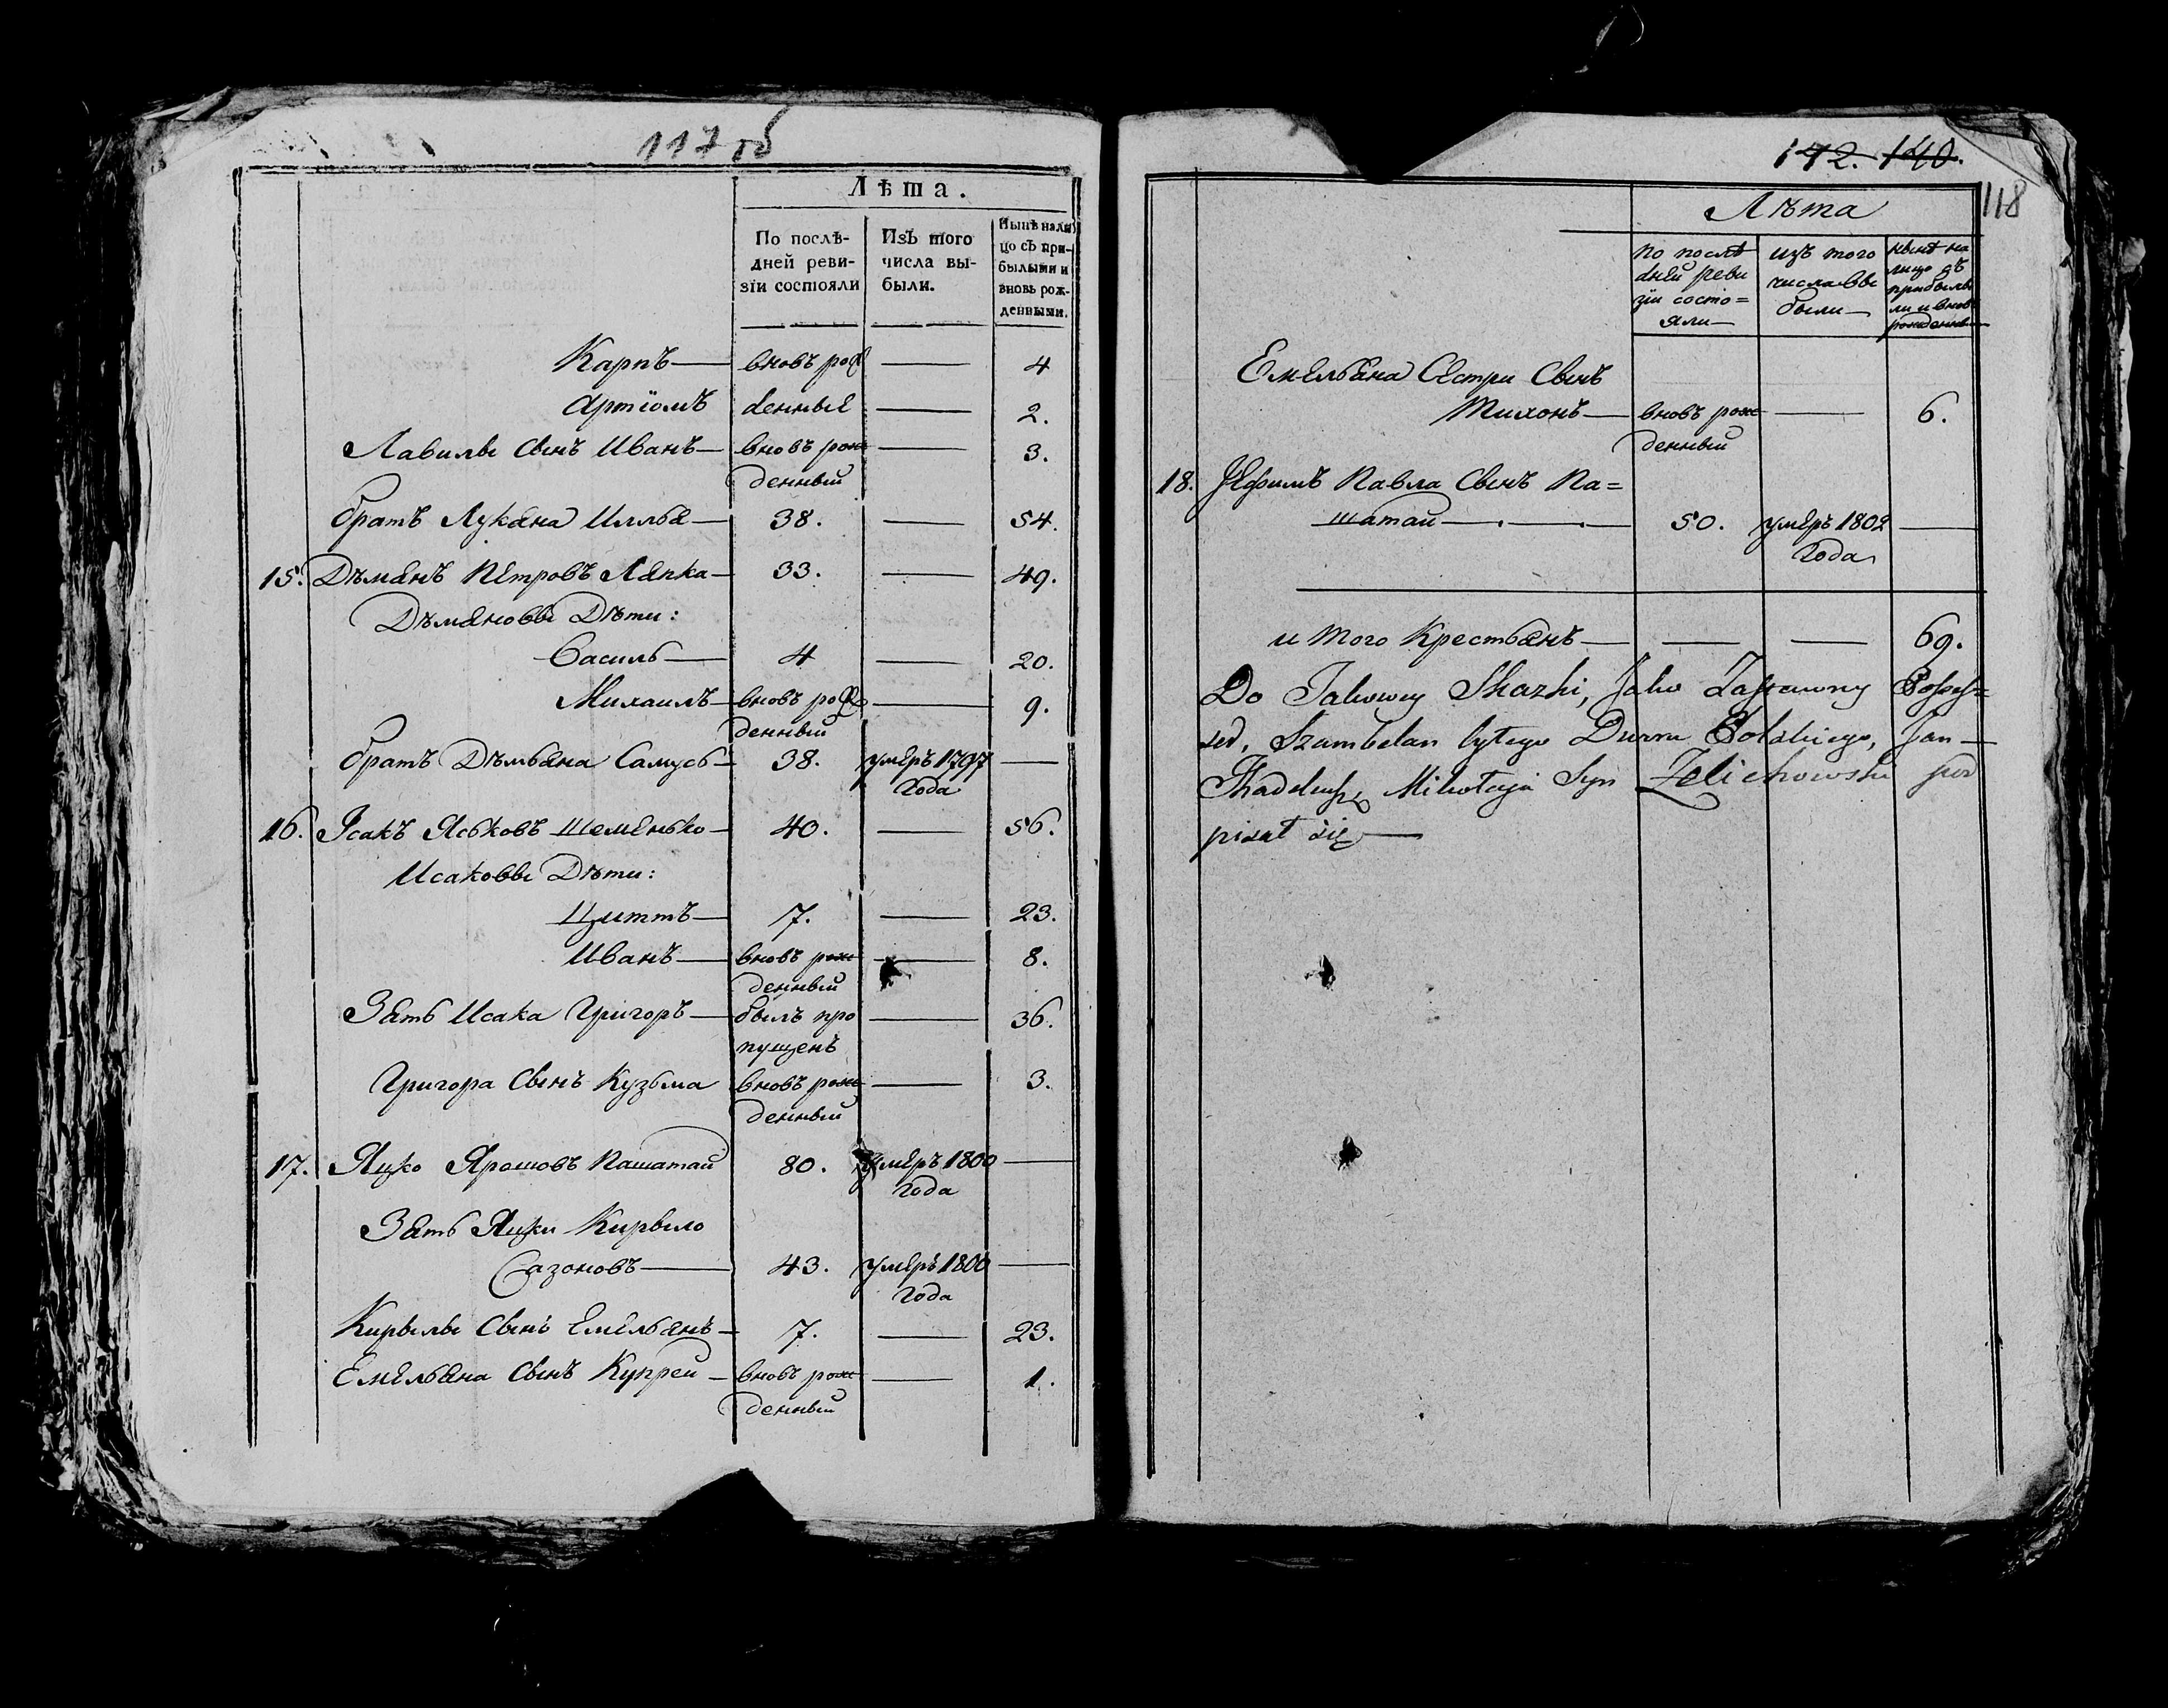 117 об
Лѣта.
По послѣ-
дней реви-
зіи состояли
Изъ того
числа вы-
были.
Нынѣ нали
цо съ при-
былыми и
вновь рож-
денными.
Карпъ — вновъ рож — 4
Артіомъ денные — 2.
Лавилы Сынъ Иванъ — вновъ рож — 3.
денный
братъ Лукяна Иллья — 38. — 54.
15. Дѣмянъ Петровъ Ляпка — 33. — 49.
Дѣмяновы Дѣти:
Василь — 4 — 20.
Михаилъ — вновъ рож — 9.
денный
братъ Дѣмьяна Самусь — 38. умеръ 1797 —
года
16. Ісакъ Яськовъ Шеменько — 40. — 56.
Исаковы Дѣти:
Циттъ — 7. — 23.
Иванъ — вновъ рож — 8.
денный
Зять Исака Григоръ — былъ про — 36.
пущенъ
Григора Сынъ Кузьма вновъ рож — 3.
денный
17. Яцко Ярошовъ Пашатай 80. умеръ 1800 —
года
Зять Яцки Кирыло
Сазоновъ — 43. умеръ 1800 —
года
Кирылы Сынъ Емельянъ — 7. — 23.
Емельяна Сынъ Купрей — вновъ рож — 1.
денный
142. 140.
118
Лѣта
по послѣ
дней реви
зіи состо=
яли —
изъ того
числа вы
были —
нынѣ на
лицо съ
прибылы
ми и внов
рожденны
Емельяна Сестри Сынъ
Тихонъ — вновъ рож — 6.
денный
18. Јефимъ Павла Сынъ Па=
шатай — 50. умеръ 1802 —
года
и того Крестьянъ — — — 69.
Do Takowey Skazki, Jako Zastawny Possess=
sor, Szambelan bytego Dworu Polskiego, Jan —
Thadeusz Mikołaja Syn Zelichowski pod
pisał się —